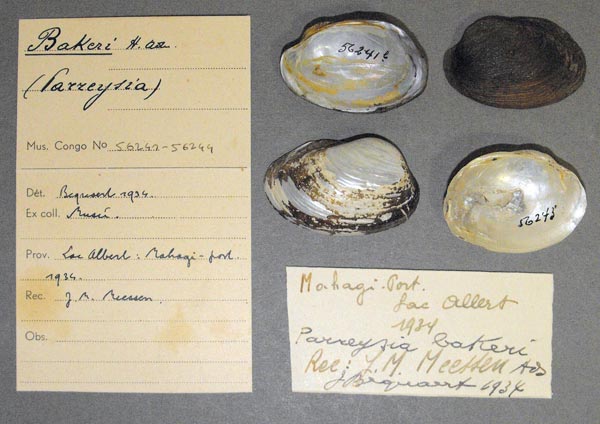 Bakeri H. az.
(Parreysia)
Mus. Congo No 56242-56244
Dét. Bequaert 1934.
Ex coll. Musée.
Prov. Lac Albert : Mahagi-port.
1934.
Rec. J. M. Meessen.
Obs.
56241
56245
Mahagi-Port.
Lac Albert
1934
Parreysia bakeri
Rec: J. M. Meessen
J Bequaert 1934